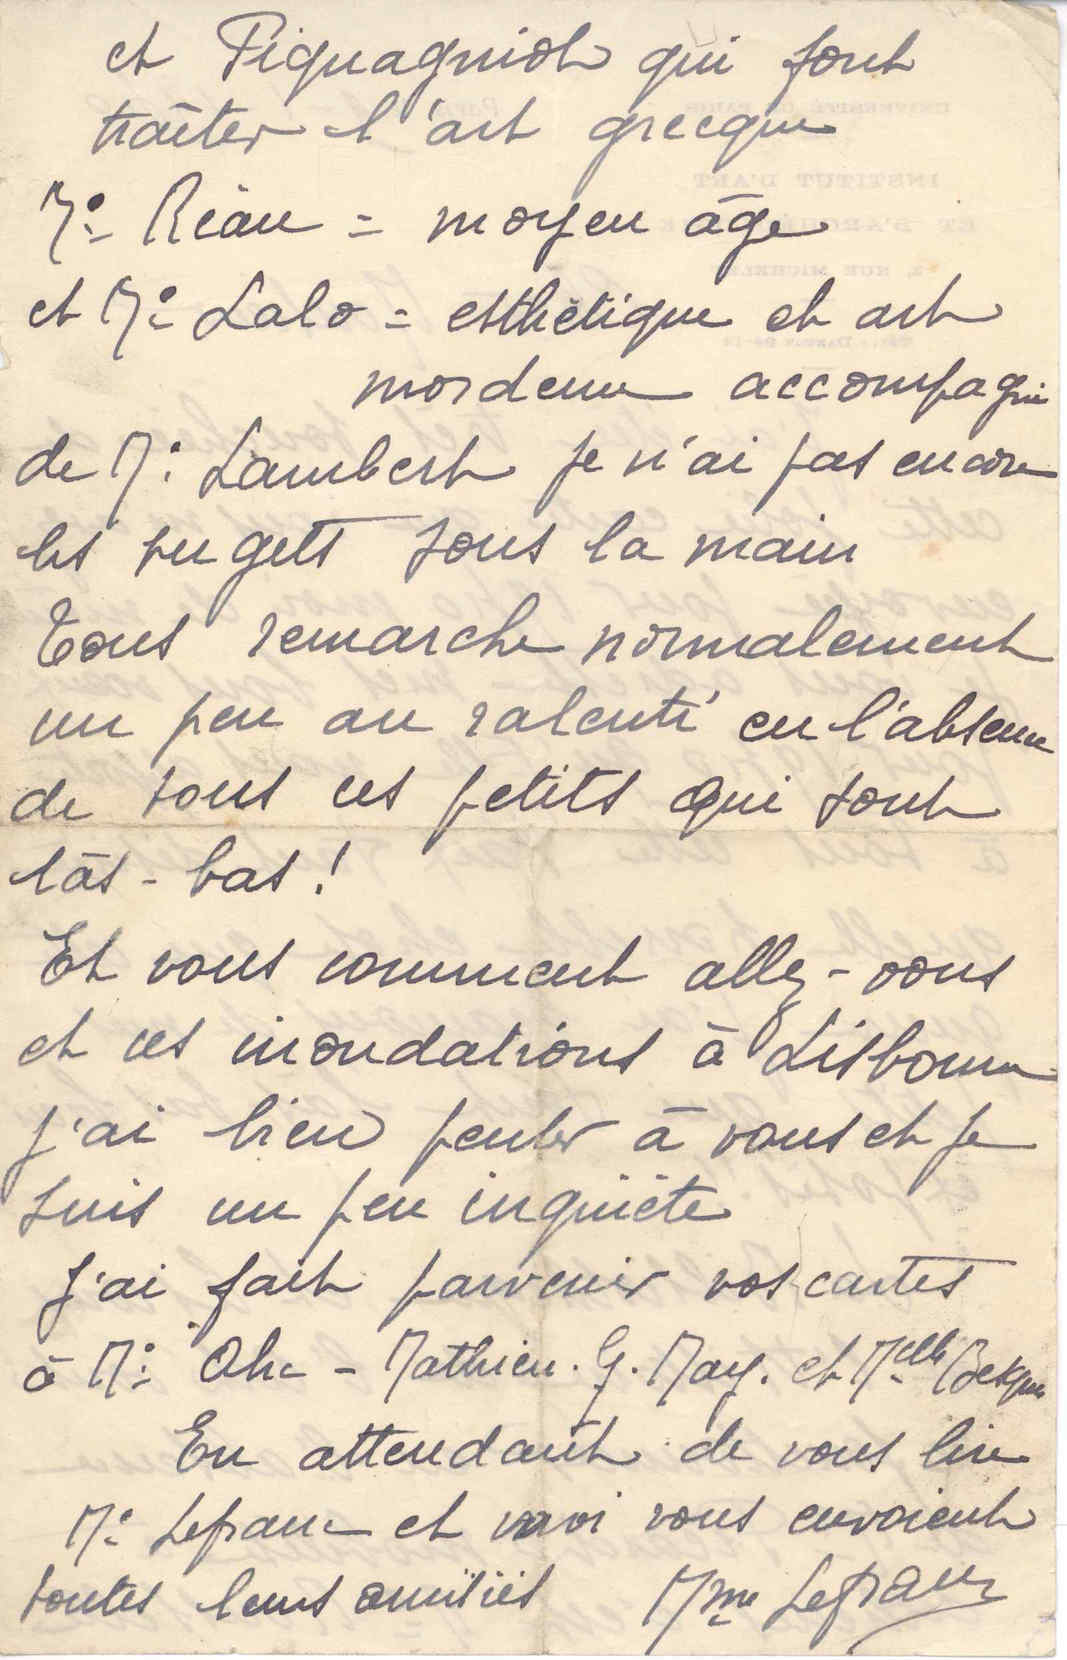 et Piquagniol qui font
traiter l'art grecque
Mr Réau = moyen âge
et Mr Lalo = esthétique et art
mordenne accompagnie
de Mr Lambert je n'ai pas encore
les sugets sous la main
Tous remarche normalement
un peu au ralenti en l'absence
de tous ces petits qui sont
lâs-bas !
Et vous comment allez-vous
et ces inondations à Lisbonne
j'ai bien penser à vous et je
suis un peu inquiète
J'ai fait parvenir vos cartes
à Mr - Mathieu. G. May. et Melle
En attendant de vous lire
Mr Lefranc et moi vous envoient
toutes leurs amitiés Mme Lefranc
UNIVERSITÉ DE PARIS
INSTITUT D'ART
ET D'ARCHÉOLOGIE
3, RUE MICHELET